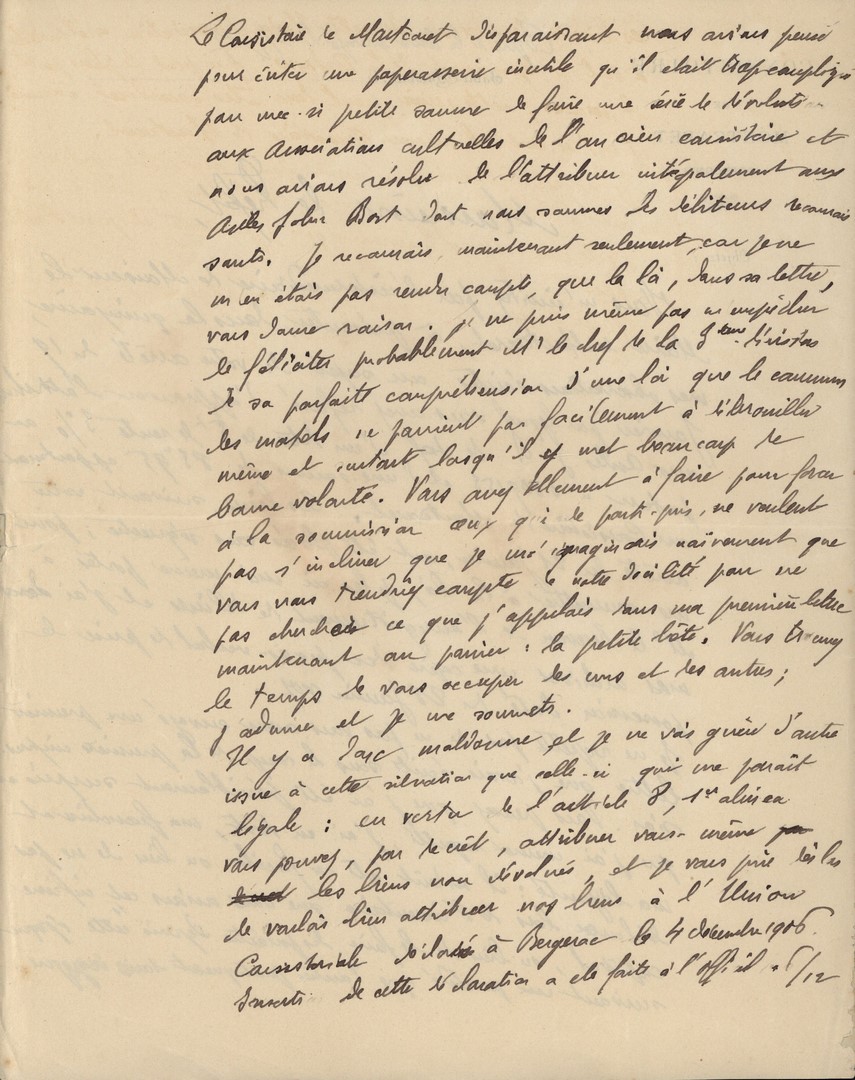 Le Consistoire de Montcaret disparaissant nous avions pensé
pour éviter une paperasserie inutile qu'il était trop compliqué
pour une si petite somme de faire une série de dévoluti-
aux Associations cultuelles de l'ancien consistoire et
nous avions résolu de l'attribuer intégralement aux
Asiles John Bost dont nous sommes les débiteurs reconnais
sants. Je reconnais maintenant seulement, car je ne
m'en étais pas rendu compte, que la loi, dans sa lettre,
vous donne raison. Je ne puis même pas m'empêcher
de féliciter probablement Mr le chef de la 3eme division
de sa parfaite compréhension d'une loi que le commun
des mortels ne parvient pas facilement à débrouiller
même et surtout lorsqu'il y met beaucoup de
bonne volonté. Vous avez tellement à faire pour forcer
à la soumission ceux qui de parti-pris, ne veulent
pas s'incliner que je m'imaginais naïvement que
vous nous tiendriez compte de notre docilité pour ne
pas chercher ce que j'appelais dans ma première lettre
maintenant au panier : la petite bête. Vous trouvez
le temps de vous occuper des uns et des autres ;
j'admire et je me soumets.
Il y a donc maldonne et je ne vois guère d'autre
issue à cette situation que celle-ci qui me paraît
légale : en vertu de l'article 8, 1er alinea
vous pouvez, par décret, attribuer vous-même
les biens non dévolués, et je vous prie dès lors
de vouloir bien attribuer nos biens à l'Union
Consistoriale déclarée à Bergerac le 4 décembre 1906.
Inserti de cette déclaration a été faite à l'Officiel 5/12